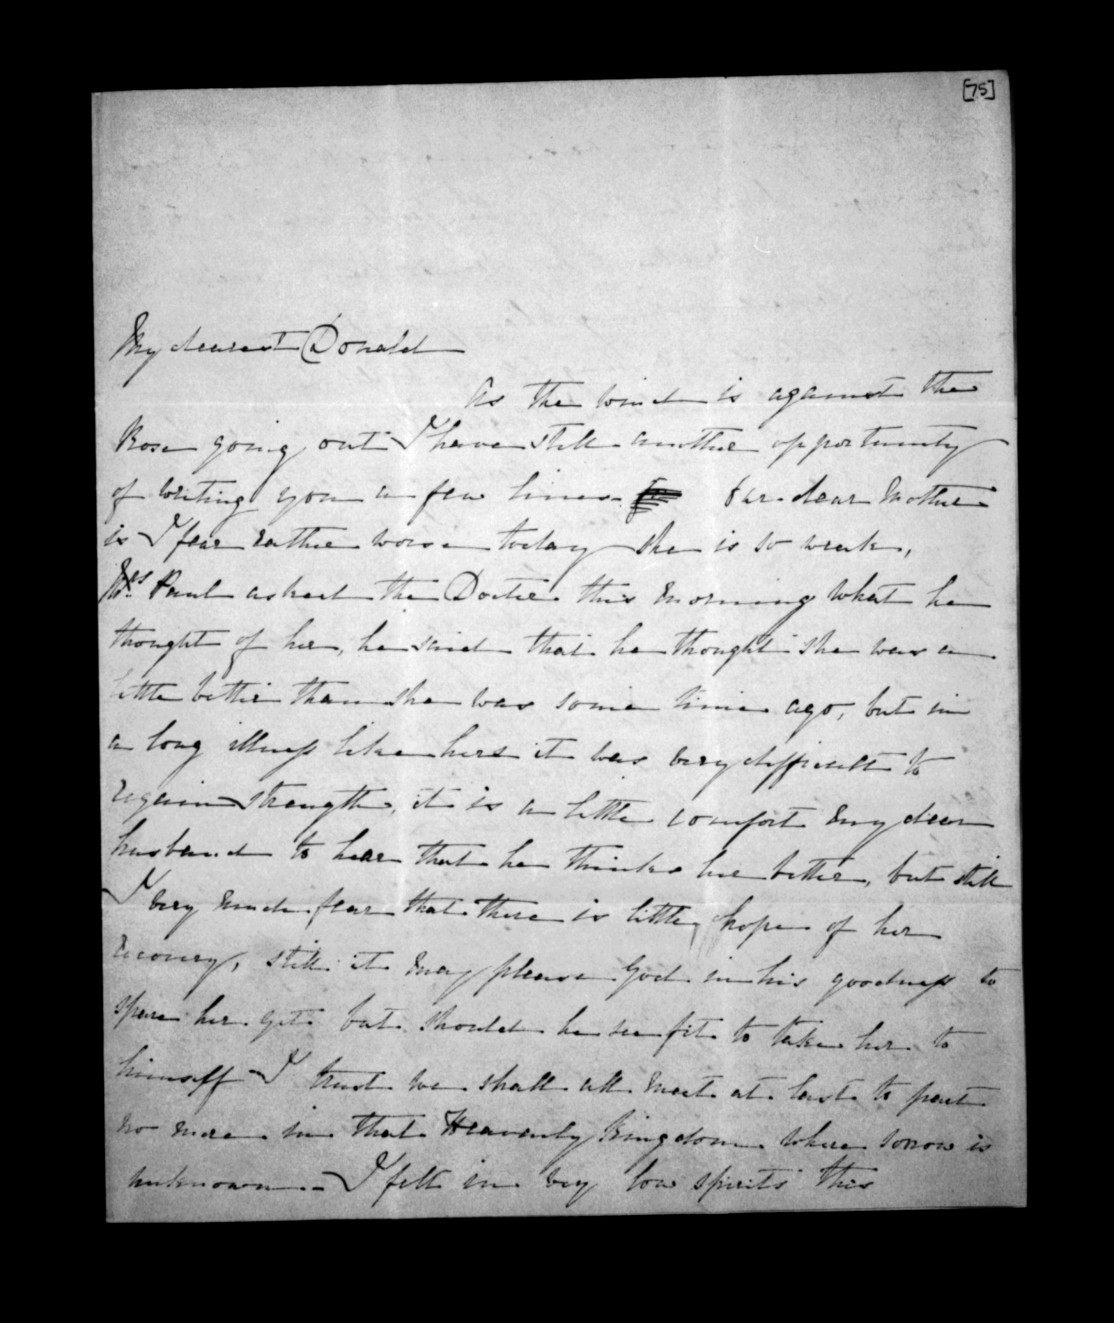 [75]
My dearest Donald
As the wind is against the
Rose going out I have still another opportunity
of writing you a few lines. Our dear Mother
is I fear rather worse today she is so weak,
Mrs Paul asked the Doctor this morning what he
thought of her, he said that he thought she was a
little better than she was some time ago, but in
a long illness like hers it was very difficult to
regain strength, it is a little comfort my dear
husband to hear that he thinks her better, but still
I very much fear that there is little hope of her
recovery, still it may please God in his goodness to
spare her yet but should he see fit to take her to
himself I trust we shall all meet at last to part
no more in that Heavenly Kingdom where sorrow is
unknown. - I felt in very low spirits this